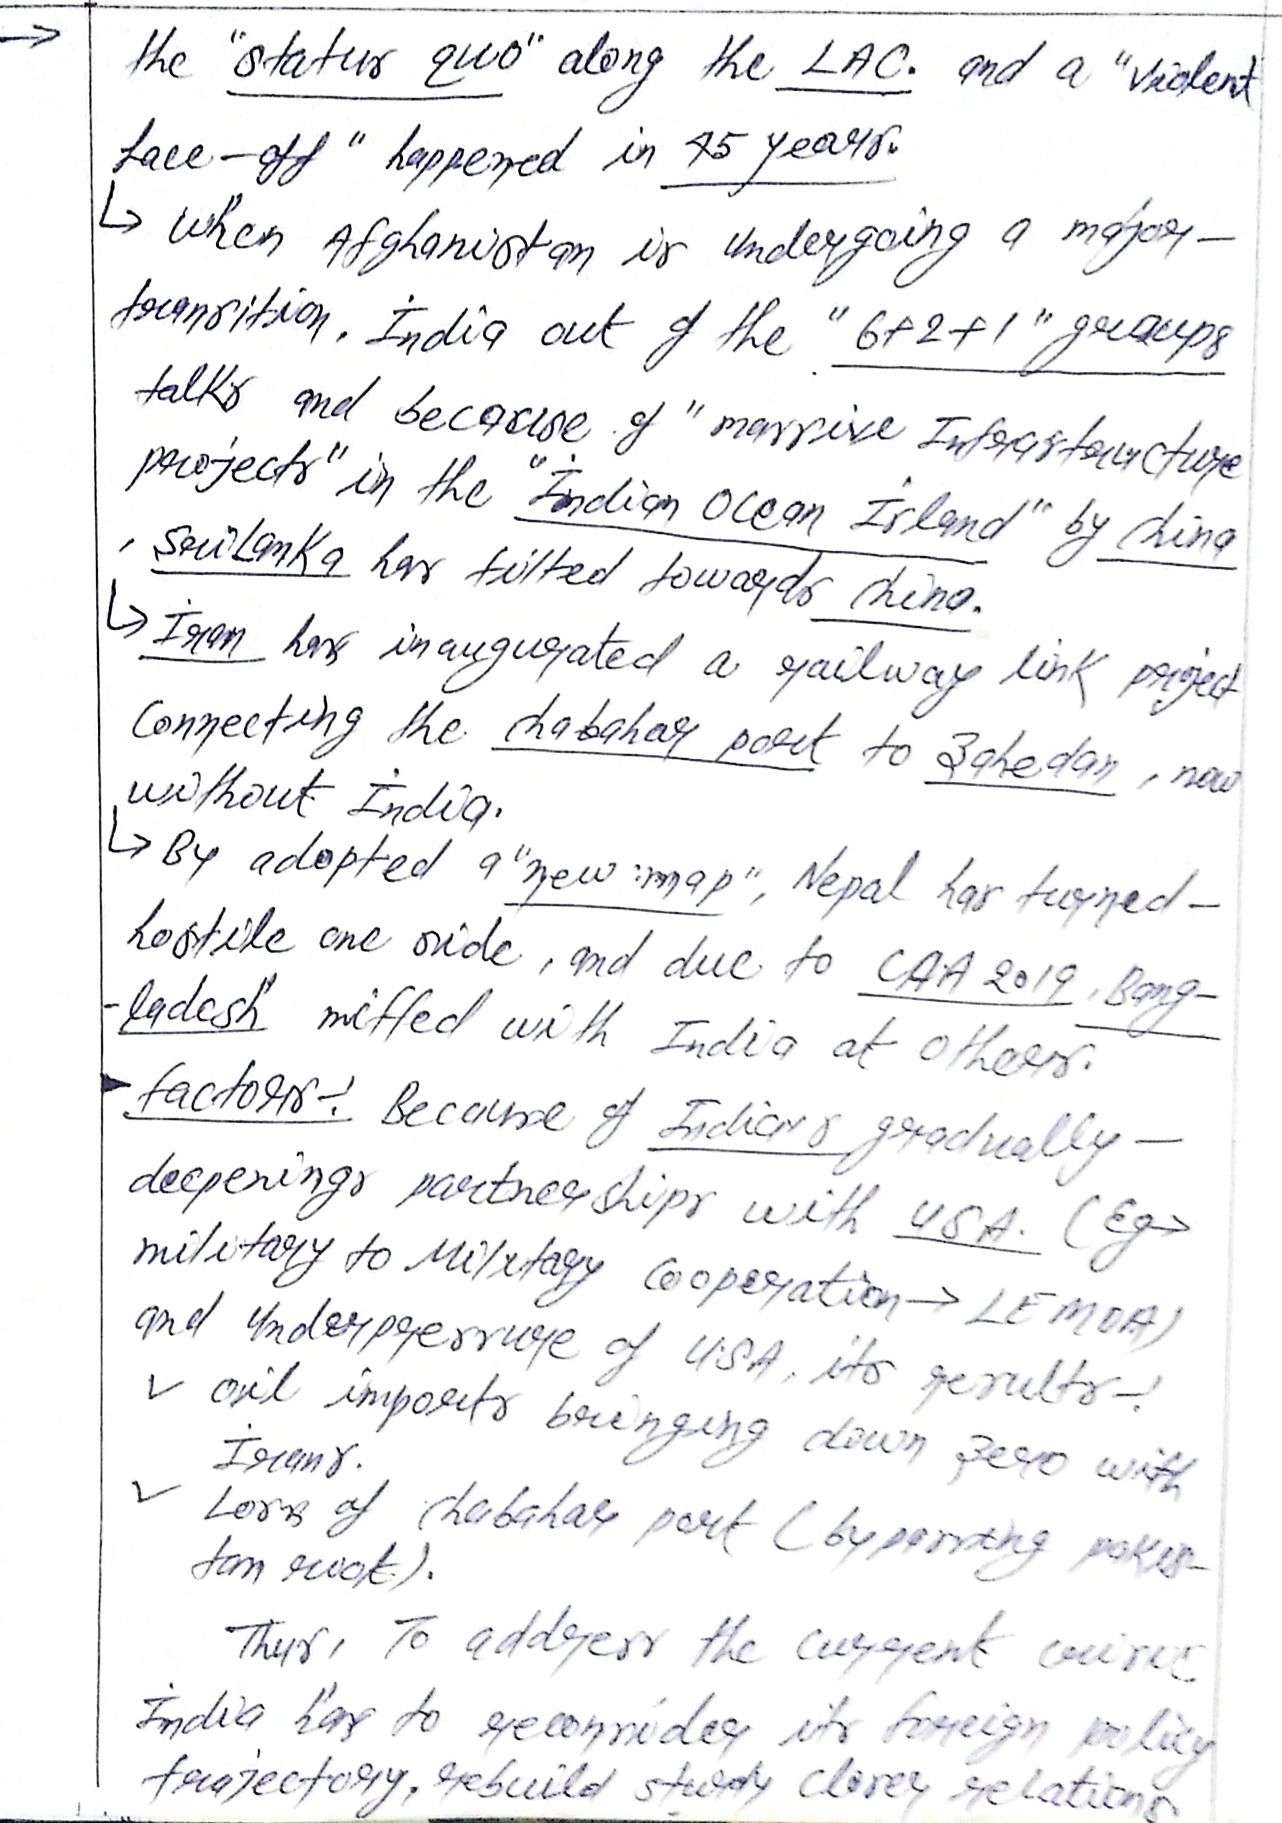 → the "status quo" along the LAC. and a "violent
face-off" happened in 45 years.
↳ when Afghanistan is undergoing a major-
transition. India out of the "6+2+1" groups
talks and because of "massive Infrastructure
projects" in the "Indian Ocean Island" by china
, SriLanka has tilted towards china.
↳ Iran has inaugurated a railway link project
connecting the chabahar port to Zahedan, now
without India.
↳ By adopted a "new map", Nepal has turned-
hostile one side, and due to CAA 2019, Bang-
-ladesh" miffed with India at others.
► factors:- Because of Indians gradually-
deepenings partnerships with USA. (Eg→
military to Military cooperation → LEMOA)
and underpressure of USA, its results:-
✓ oil imports bringing down zero with
Irans.
✓ Loss of chabahar port (bypassing pakis-
tan root).
Thus, To address the current crisis
India has to reconsider its foreign policy
trajectory, rebuild closer relations